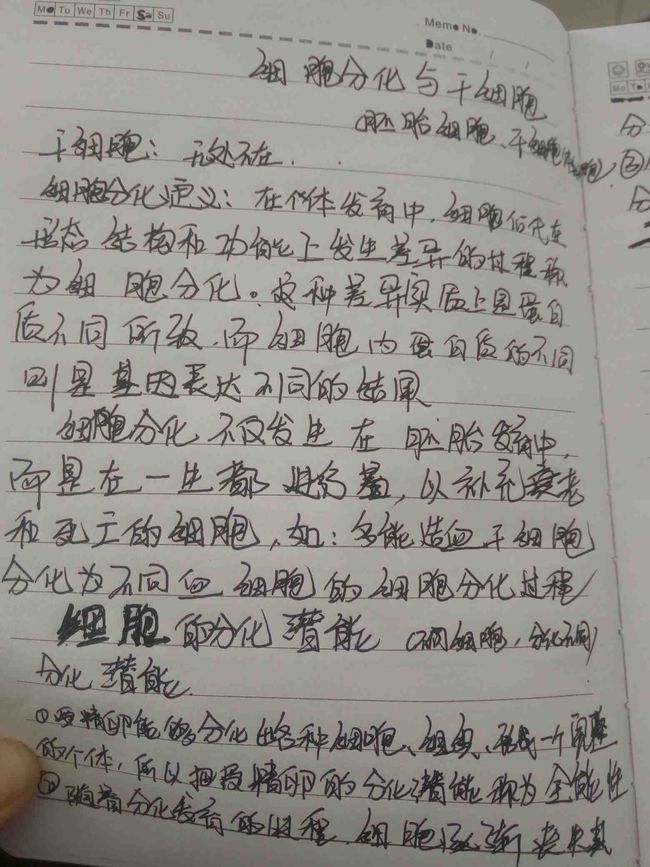 Mo Tu We Th Fr Sa Su
Memo No.
Date / /
细胞分化与干细胞
(胚胎细胞、干细胞
干细胞：无处不在．
细胞分化定义：在个体发育中，细胞后代在
形态结构和功能上发生差异的过程称
为细胞分化。这种差异实质上是蛋白
质不同所致，而细胞内蛋白质的不同
则是基因表达不同的结果
细胞分化不仅发生在胚胎发育中，
而是在一生都进行着，以补充衰老
和死亡的细胞，如：多能造血干细胞
分化为不同血细胞的细胞分化过程
细胞的分化潜能 (不同细胞，分化不同)
分化潜能
①受精卵能够分化出各种细胞、组织、形成一个完整
的个体，所以把受精卵的分化潜能称为全能性
②随着分化发育的进程，细胞逐渐丧失其
Mo Tu
分
③
分